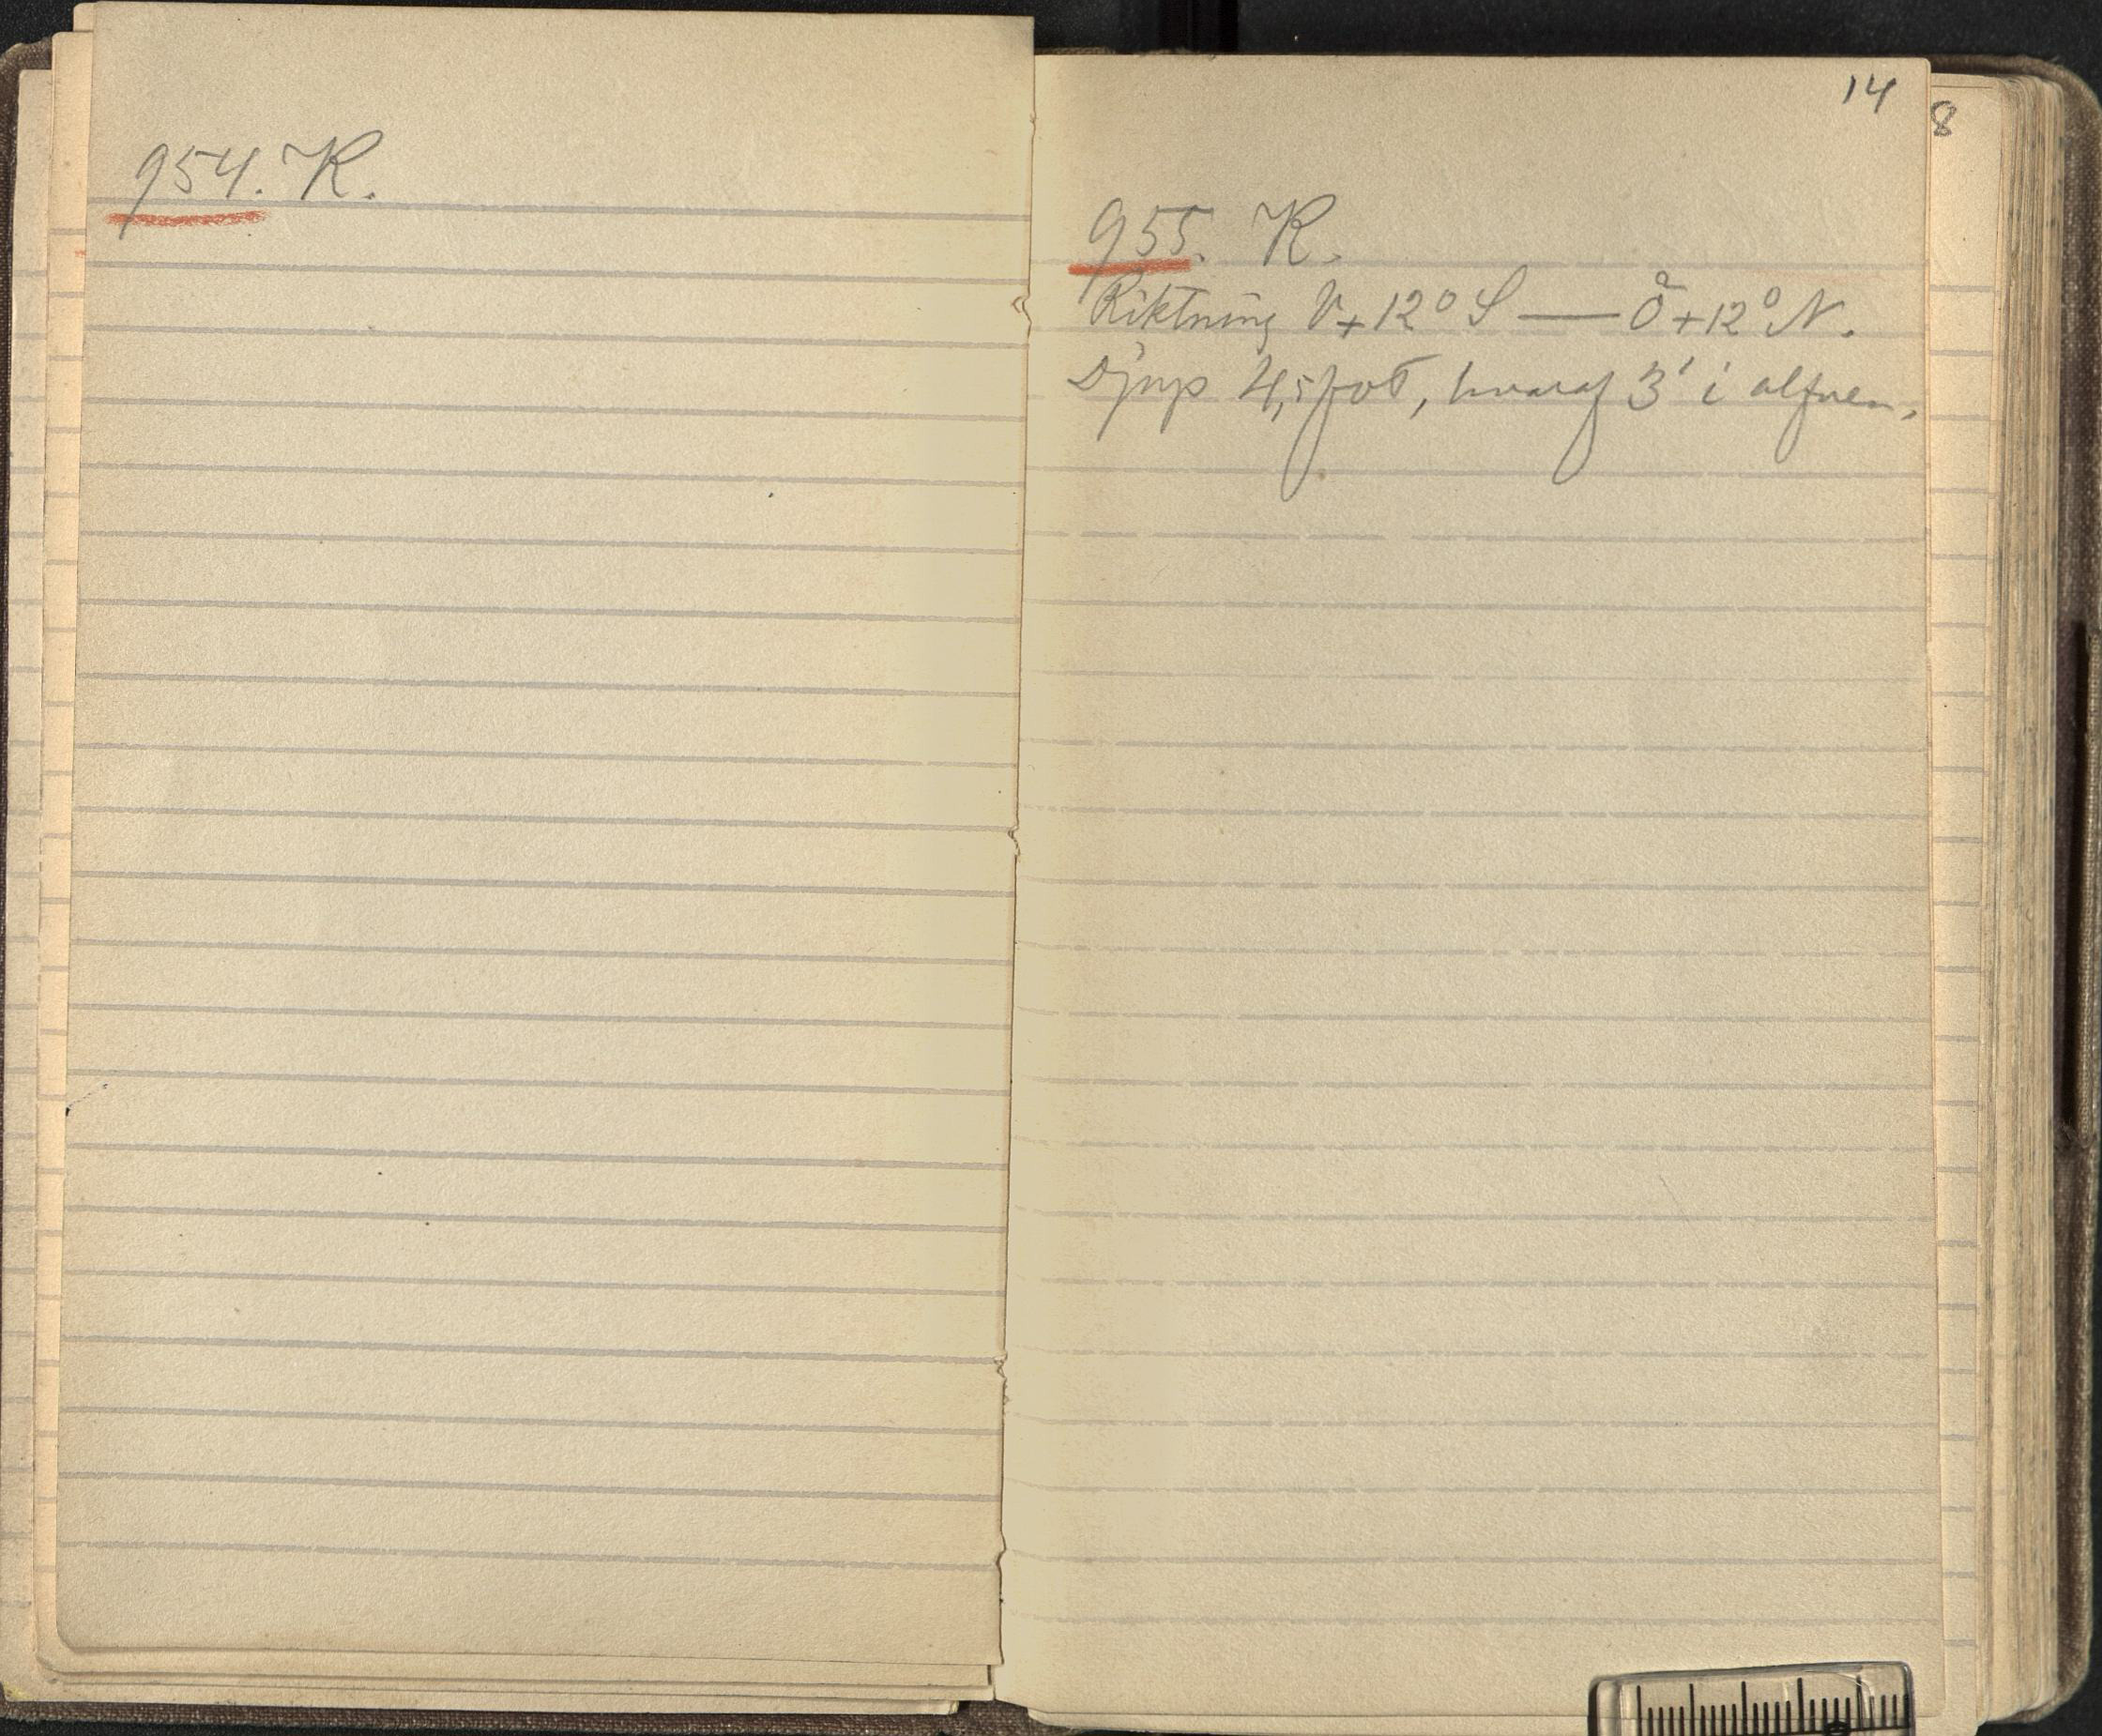 954. K.
14
8
955. K.
Riktning V+12° S — Ö+12° N.
Djup 4,5 fot, hvaraf 3' i alfven.